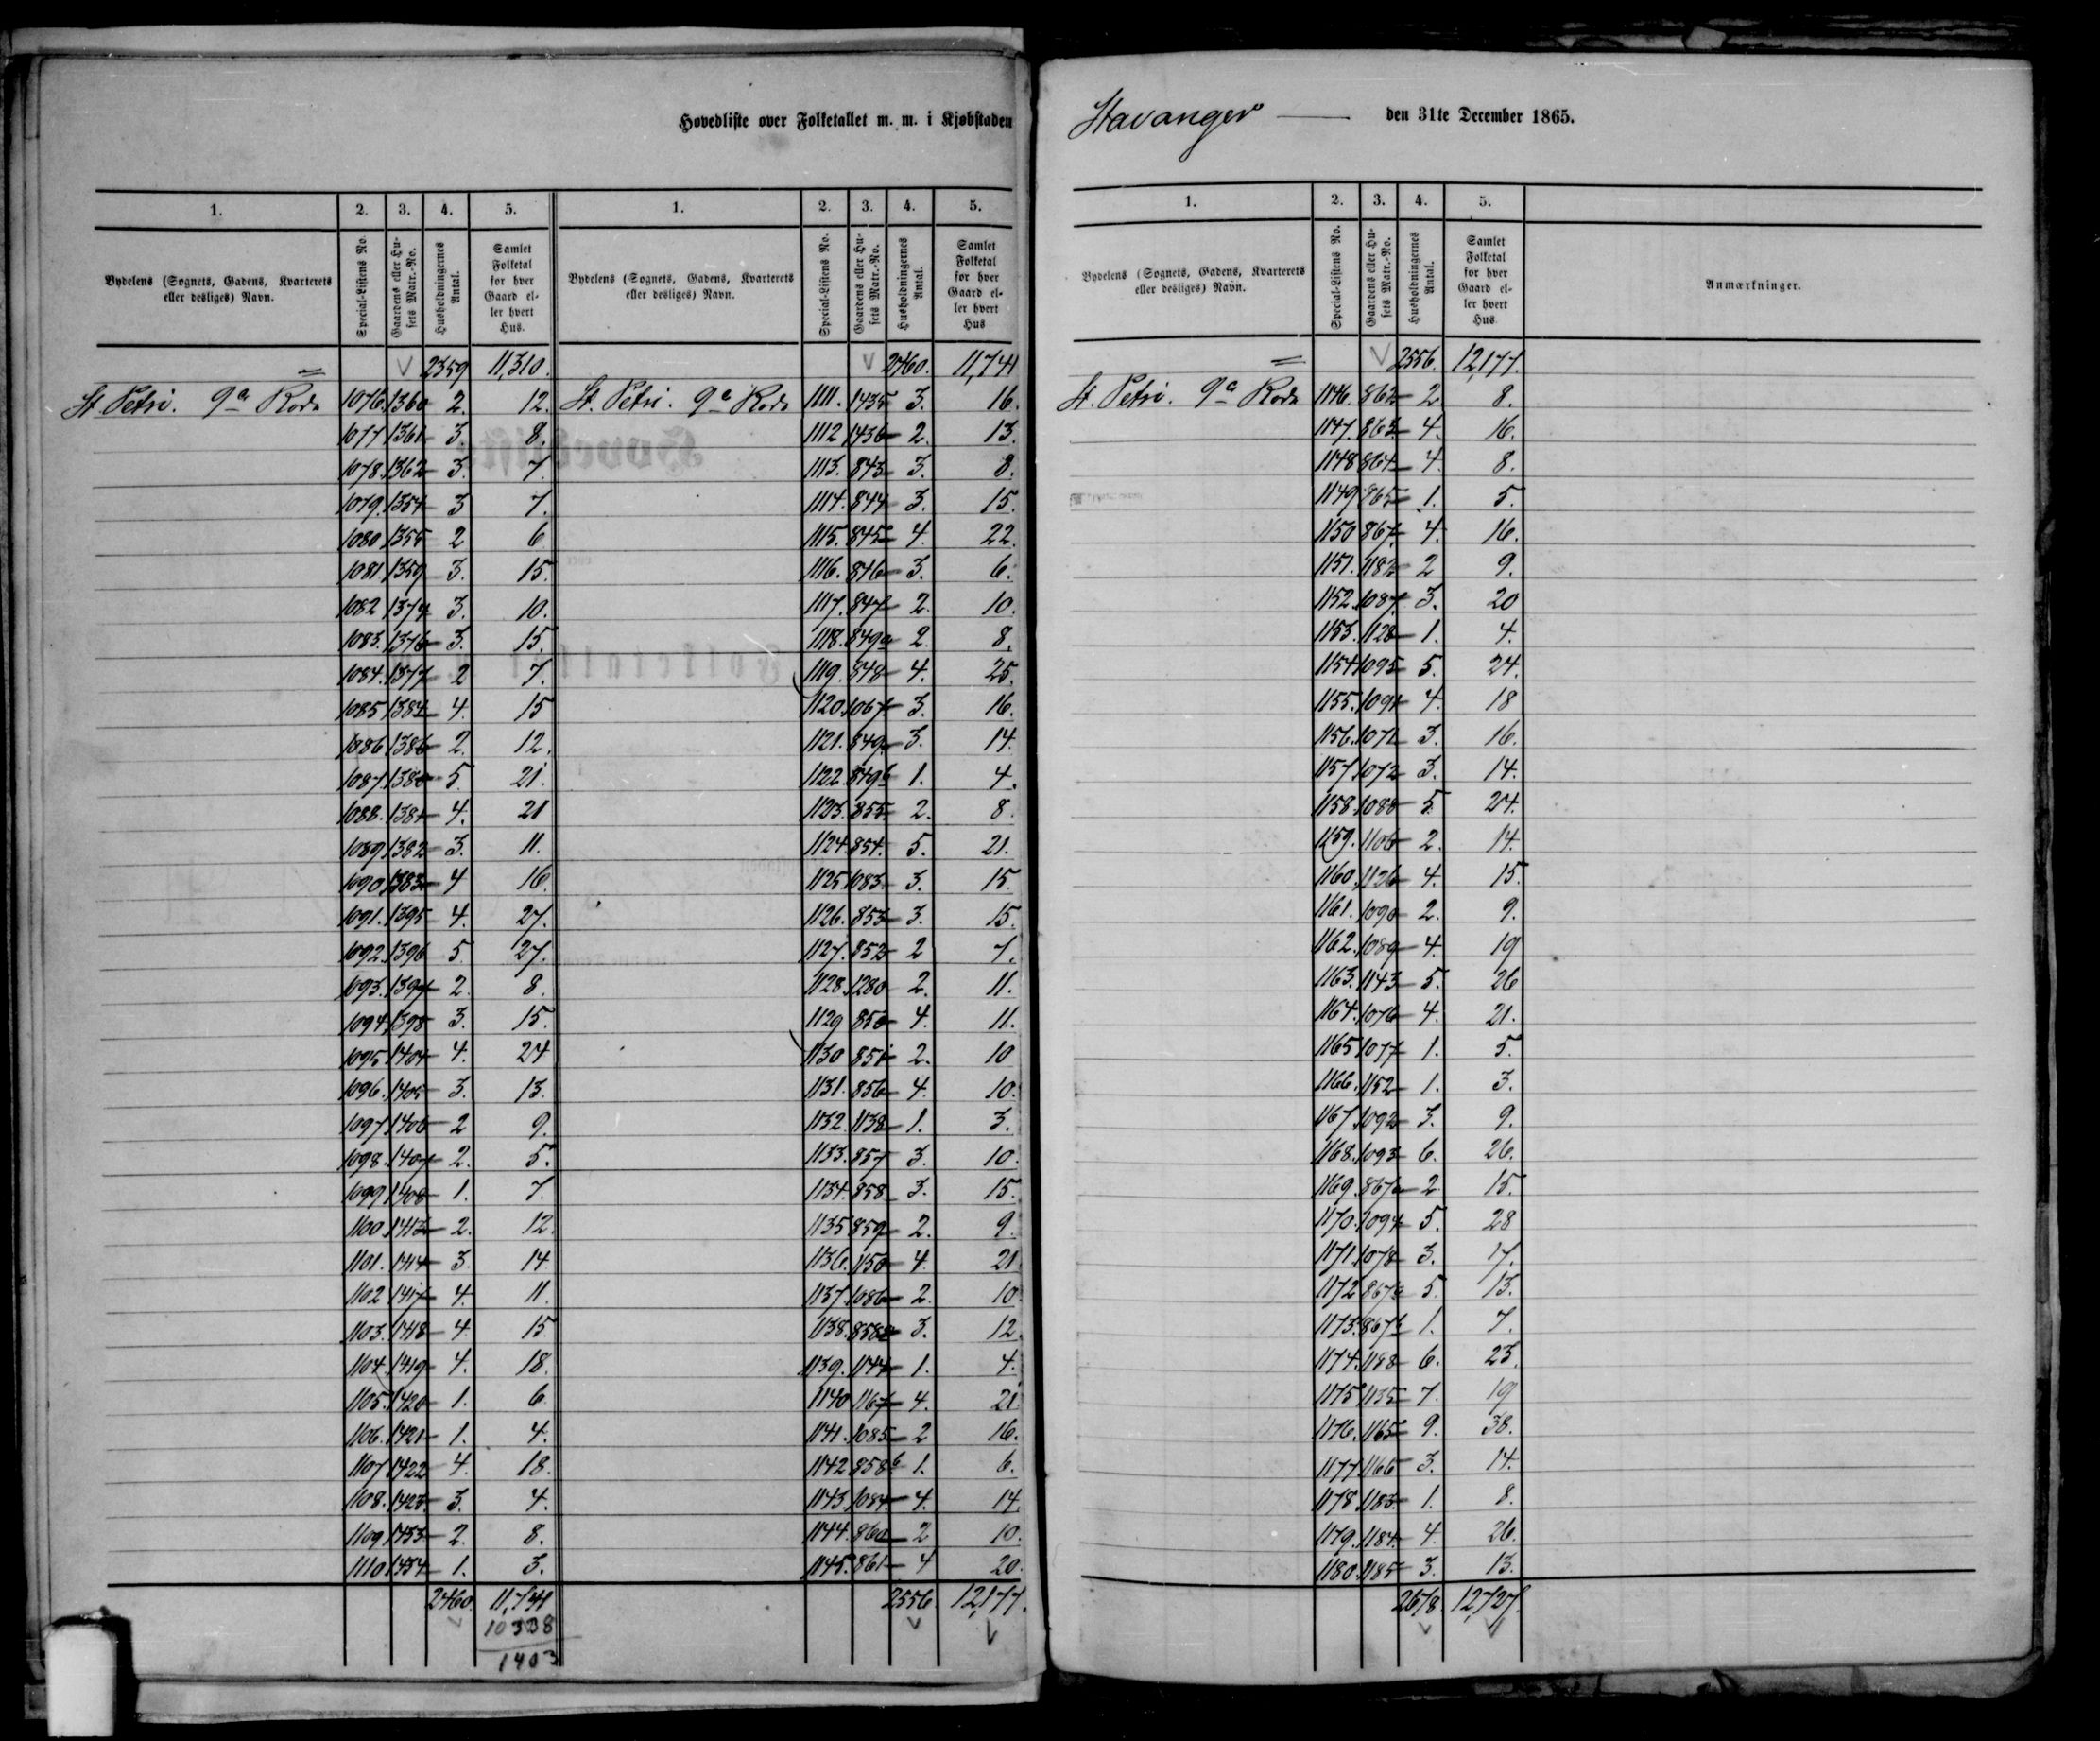 Hovedliste over Folketallet m. m. i Kjøbstaden Stavanger den 31te December 1865.
1. 2. 3. 4. 5. 1. 2. 3. 4. 5.
Bydelens (Sognets, Gadens, Kvarterets eller desliges) Navn. Special-Listens No. Gaardens eller Husets Matr.-No. Husholdningernes Antal. Samlet Folketal for hver Gaard eller hvert Hus.
Bydelens (Sognets, Gadens, Kvarterets eller desliges) Navn. Special-Listens No. Gaardens eller Husets Matr.-No. Husholdningernes Antal. Samlet Folketal for hver Gaard eller hvert Hus
2359 11,310. 2460. 11,741
St. Petri. 9a Rode 1076. 1360 2. 12. St. Petri. 9a Rode 1111. 1435 3. 16.
1077 1361 3. 8. 1112 1436 2. 13.
1078. 1362 3. 7. 1113. 843 3. 8.
1079. 1354 3 7. 1114. 844 3. 15.
1080 1355 2 6 1115. 845 4. 22.
1081. 1359 3. 15. 1116. 846 3. 6.
1082 1374 3. 10. 1117. 847 2. 10.
1083. 1376 3. 15. 1118. 849a 2. 8.
1084. 1377 2 7. 1119. 848 4. 25.
1085 1384 4. 15 1120. 1067 3. 16.
1086 1386 2. 12. 1121. 849 3. 14.
1087. 1380 5 21. 1122. 849b 1. 4.
1088. 1381 4. 21 1123. 855 2. 8.
1089 1382 3. 11. 1124 854. 5. 21.
1090 1383 4 16 1125 1083. 3. 15.
1091. 1395 4. 27. 1126. 853 3. 15.
1092. 1396 5 27. 1127. 852 2 7.
1093. 1397 2 8. 1128. 1280 2. 11.
1094 1398 3. 15. 1129 850 4. 11.
1095 1404 4. 24 1130 851 2. 10
1096. 1405 3. 13. 1131. 856 4. 10.
1097 1406 2 9. 1132. 1138 1. 3.
1098. 1407 2. 5. 1133. 857 3. 10.
1099 1408 1. 7. 1134. 858 3. 15.
1100 1413 2. 12. 1135 859 2. 9.
1101. 1414 3. 14 1136. 1150 4. 21
1102 1417 4. 11. 1137. 1086 2. 10
1103. 1418 4 15 1138. 858a 3. 12.
1104. 1419 4. 18. 1139. 1144 1. 4.
1105. 1420 1. 6 1140 1167 4. 21
1106. 1421 1. 4. 1141. 1085 2 16.
1107 1422 4. 18. 1142 858b 1. 6.
1108. 1423. 3. 4. 1143. 1084. 4. 14.
1109 1433 2. 8. 1144. 860 2 10.
1110 1434 1. 3. 1145. 861 4 20.
2460. 11,741 2556 12,177.
10338
1403
1. 2. 3. 4. 5.
Bydelens (Sognets, Gadens, Kvarterets eller desliges) Navn. Special-Listens No. Gaardens eller Husets Matr.-No. Husholdningernes Antal. Samlet Folketal for hver Gaard eller hvert Hus. Anmærkninger.
2556. 12,177.
St. Petri. 9a Rode 1146. 862 2 8.
1147. 863 4. 16.
1148 864 4. 8.
1149 865 1. 5.
1150 867 4. 16.
1151. 1182 2 9.
1152. 1087 3. 20
1153. 1128 1. 4.
1154 1095 5. 24.
1155. 1091 4. 18
1156. 1071 3. 16.
1157 1072 3. 14.
1158. 1088 5. 24.
1159. 1106 2. 14.
1160. 1126 4. 15.
1161. 1090 2. 9.
1162. 1089 4. 19
1163. 1143 5. 26
1164. 1076 4. 21.
1165 1077 1. 5.
1166. 1152 1. 3.
1167 1092 3. 9.
1168. 1093 6. 26.
1169. 867a 2 15.
1170. 1094 5. 28
1171. 1078 3. 17.
1172 5. 13.
1173. 867b 1. 7.
1174. 1188 6. 23.
1175 1135 7. 19
1176. 1165 9. 38.
1177 1166 3. 14.
1178 1183 1. 8.
1179. 1184 4. 26.
1180. 1185 3. 13.
2678. 12,727.